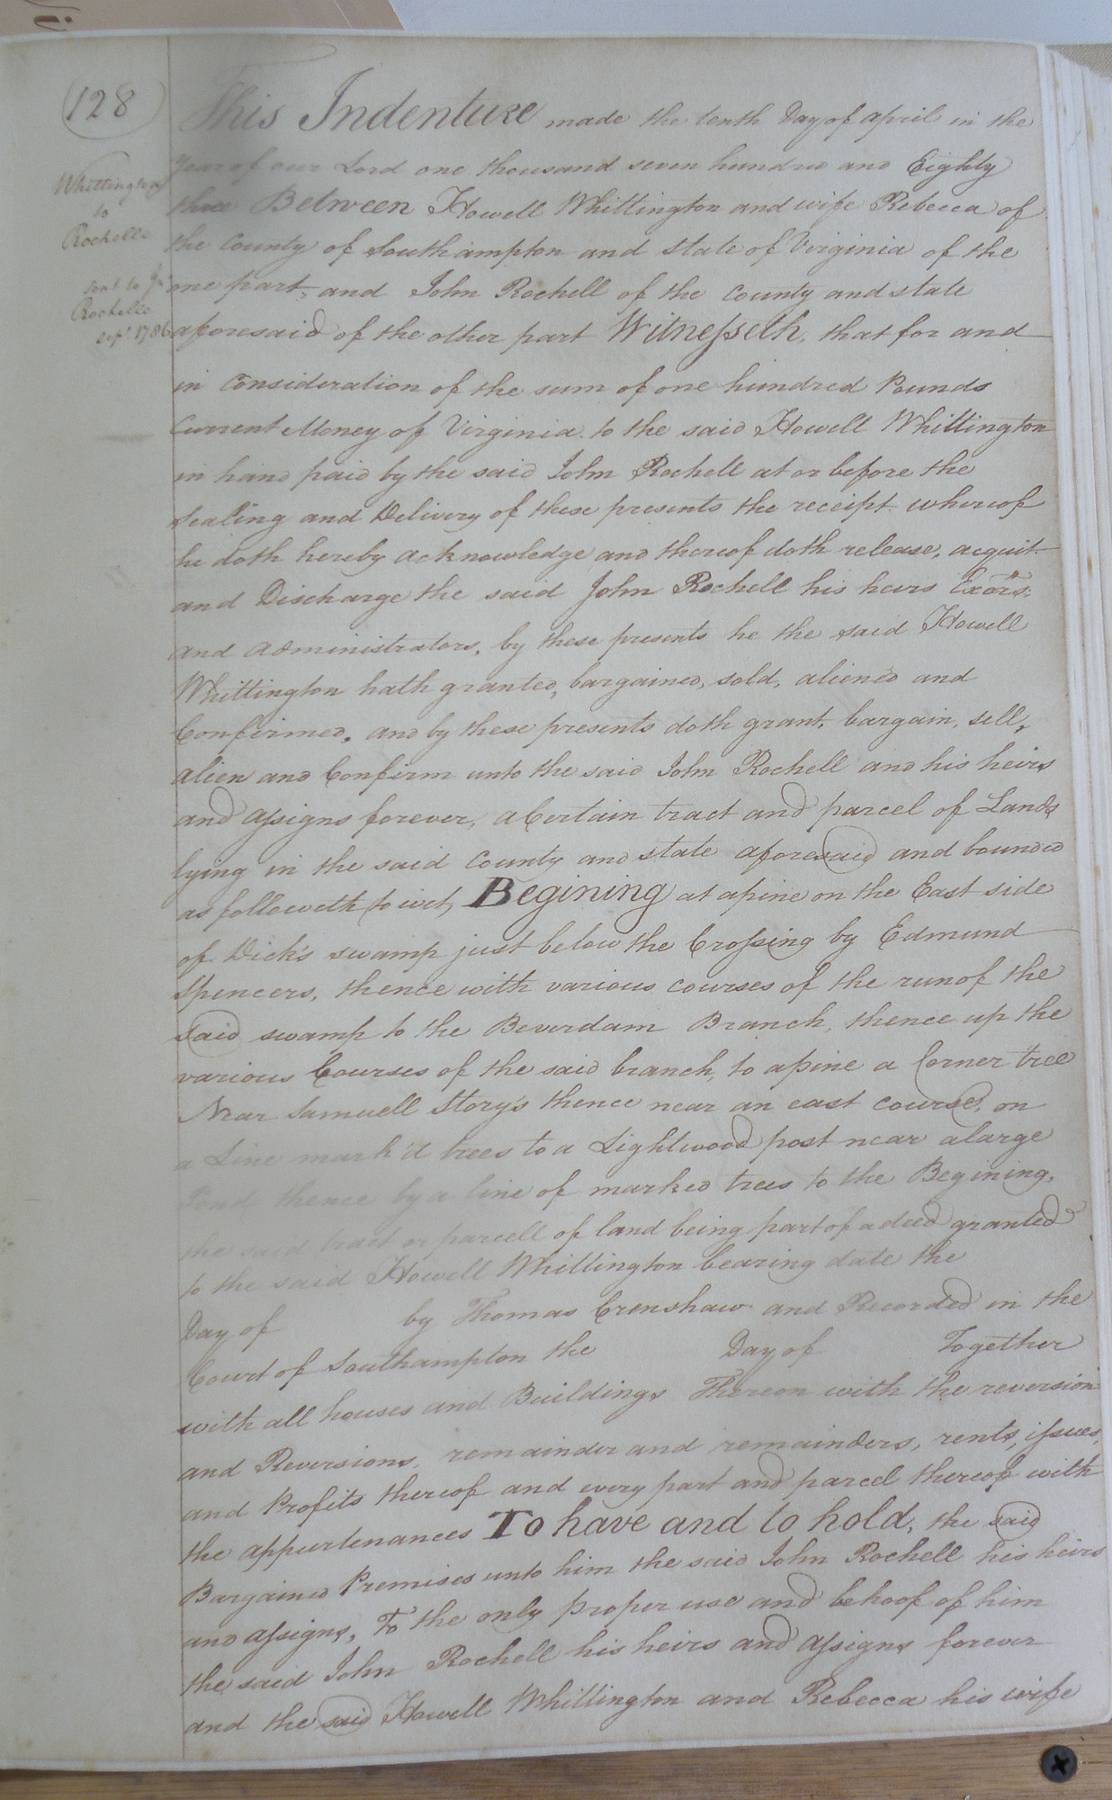 128
Whittington
to
Rochelle
sent to Jn
Rochelle
Sept. 1786
This Indenture made the tenth Day of april in the
Year of our Lord one thousand seven hundred and Eighty
three Between Howell Whittington and wife Rebecca of
the County of Southampton and State of Virginia of the
one part, and John Rochell of the County and state
aforesaid of the other part Witnesseth, that for and
in Consideration of the sum of one hundred Pounds
Current Money of Virginia to the said Howell Whittington
in hand paid by the said John Rochell at or before the
Sealing and Delivery of these presents the receipt whereof
he doth hereby acknowledge and thereof doth release, acquit
and Discharge the said John Rochell his heirs Exors.
and administrators, by these presents he the said Howell
Whittington hath granted, bargained, sold, aliened and
Confirmed, and by these presents doth grant, bargain, sell,
alien and Confirm unto the said John Rochell and his heirs
and assigns forever, a Certain tract and parcel of Lands
lying in the said County and state aforesaid and bounded
as followeth to wit, Begining at a pine on the East side
of Dick's swamp just below the Crossing by Edmund
Spencers, thence with various courses of the run of the
said swamp to the Beverdam Branch, thence up the
various Courses of the said branch, to a pine a Corner tree
Near Samuell Story's thence near an east course, on
a Line mark'd trees to a Lightwood post near a large
Pond thence by a line of marked trees to the Begining,
the said tract or parcell of land being part of a deed granted
to the said Howell Whittington bearing date the
Day of by Thomas Crenshaw and Recorded in the
Court of Southampton the Day of Together
with all houses and Buildings Thereon with the reversion
and Reversions, remainder and remainders, rents, issues,
and Profits thereof and every part and parcel thereof with
the appurtenances To have and to hold, the said
Bargained Premises unto him the said John Rochell his heirs
and assigns, To the only proper use and behoof of him
the said John Rochell his heirs and assigns forever
and the said Howell Whittington and Rebecca his wife